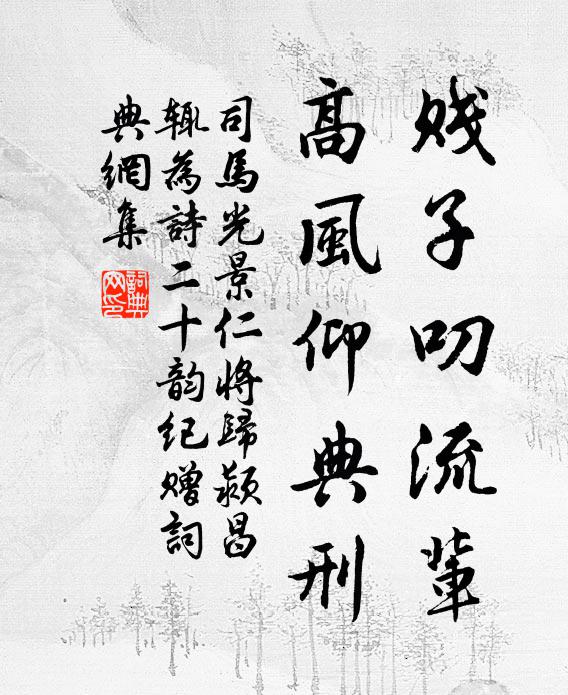 賤子叨流輩
高風仰典刑
司馬光景仁將歸潁昌
輒為詩二十韵紀贈詞
典網集
詞典网印